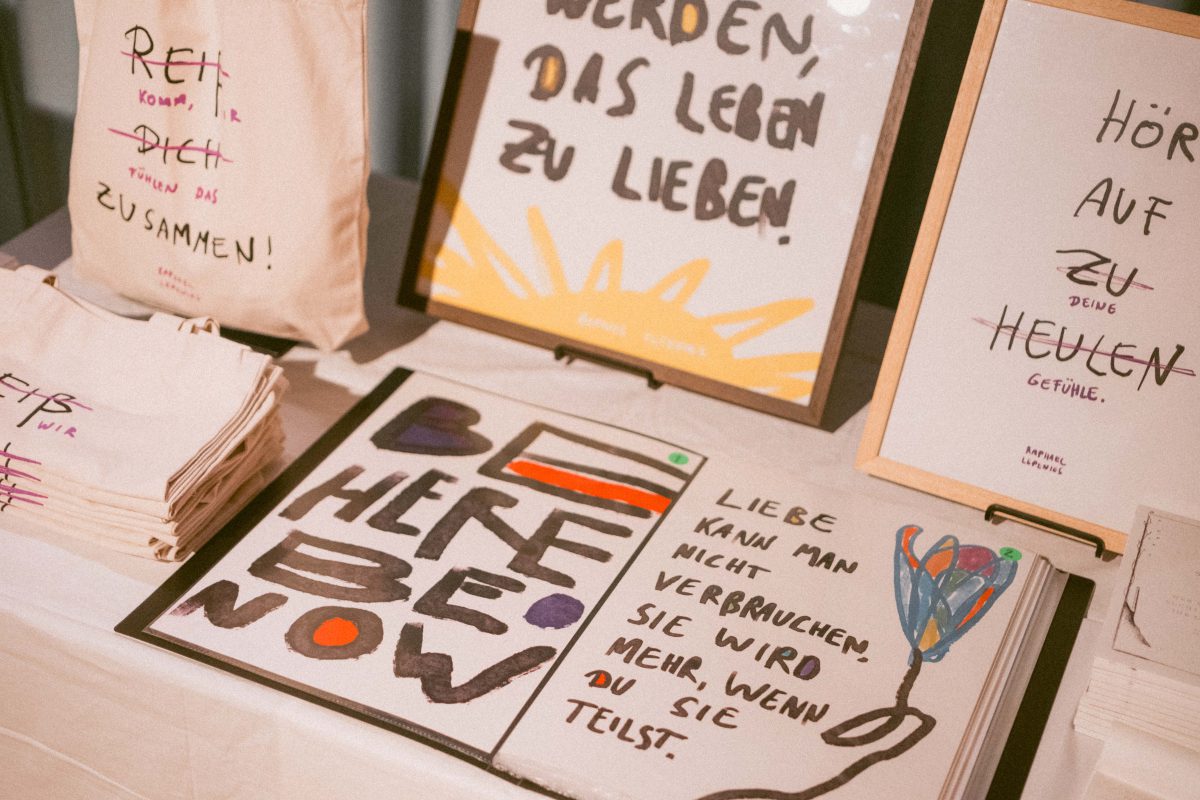 REIß
KOMM, WIR
DICH
FÜHLEN DAS
ZUSAMMEN!
RAPHAEL
LEPENIES
EIß
WIR
WERDEN,
DAS LEBEN
ZU LIEBEN.
RAPHAEL LEPENIES
HÖR
AUF
ZU
DEINE
HEULEN
GEFÜHLE.
RAPHAEL
LEPENIES
BE
HERE
BE
NOW
1
LIEBE
KANN MAN
NICHT
VERBRAUCHEN,
SIE WIRD
MEHR, WENN
DU SIE
TEILST.
2